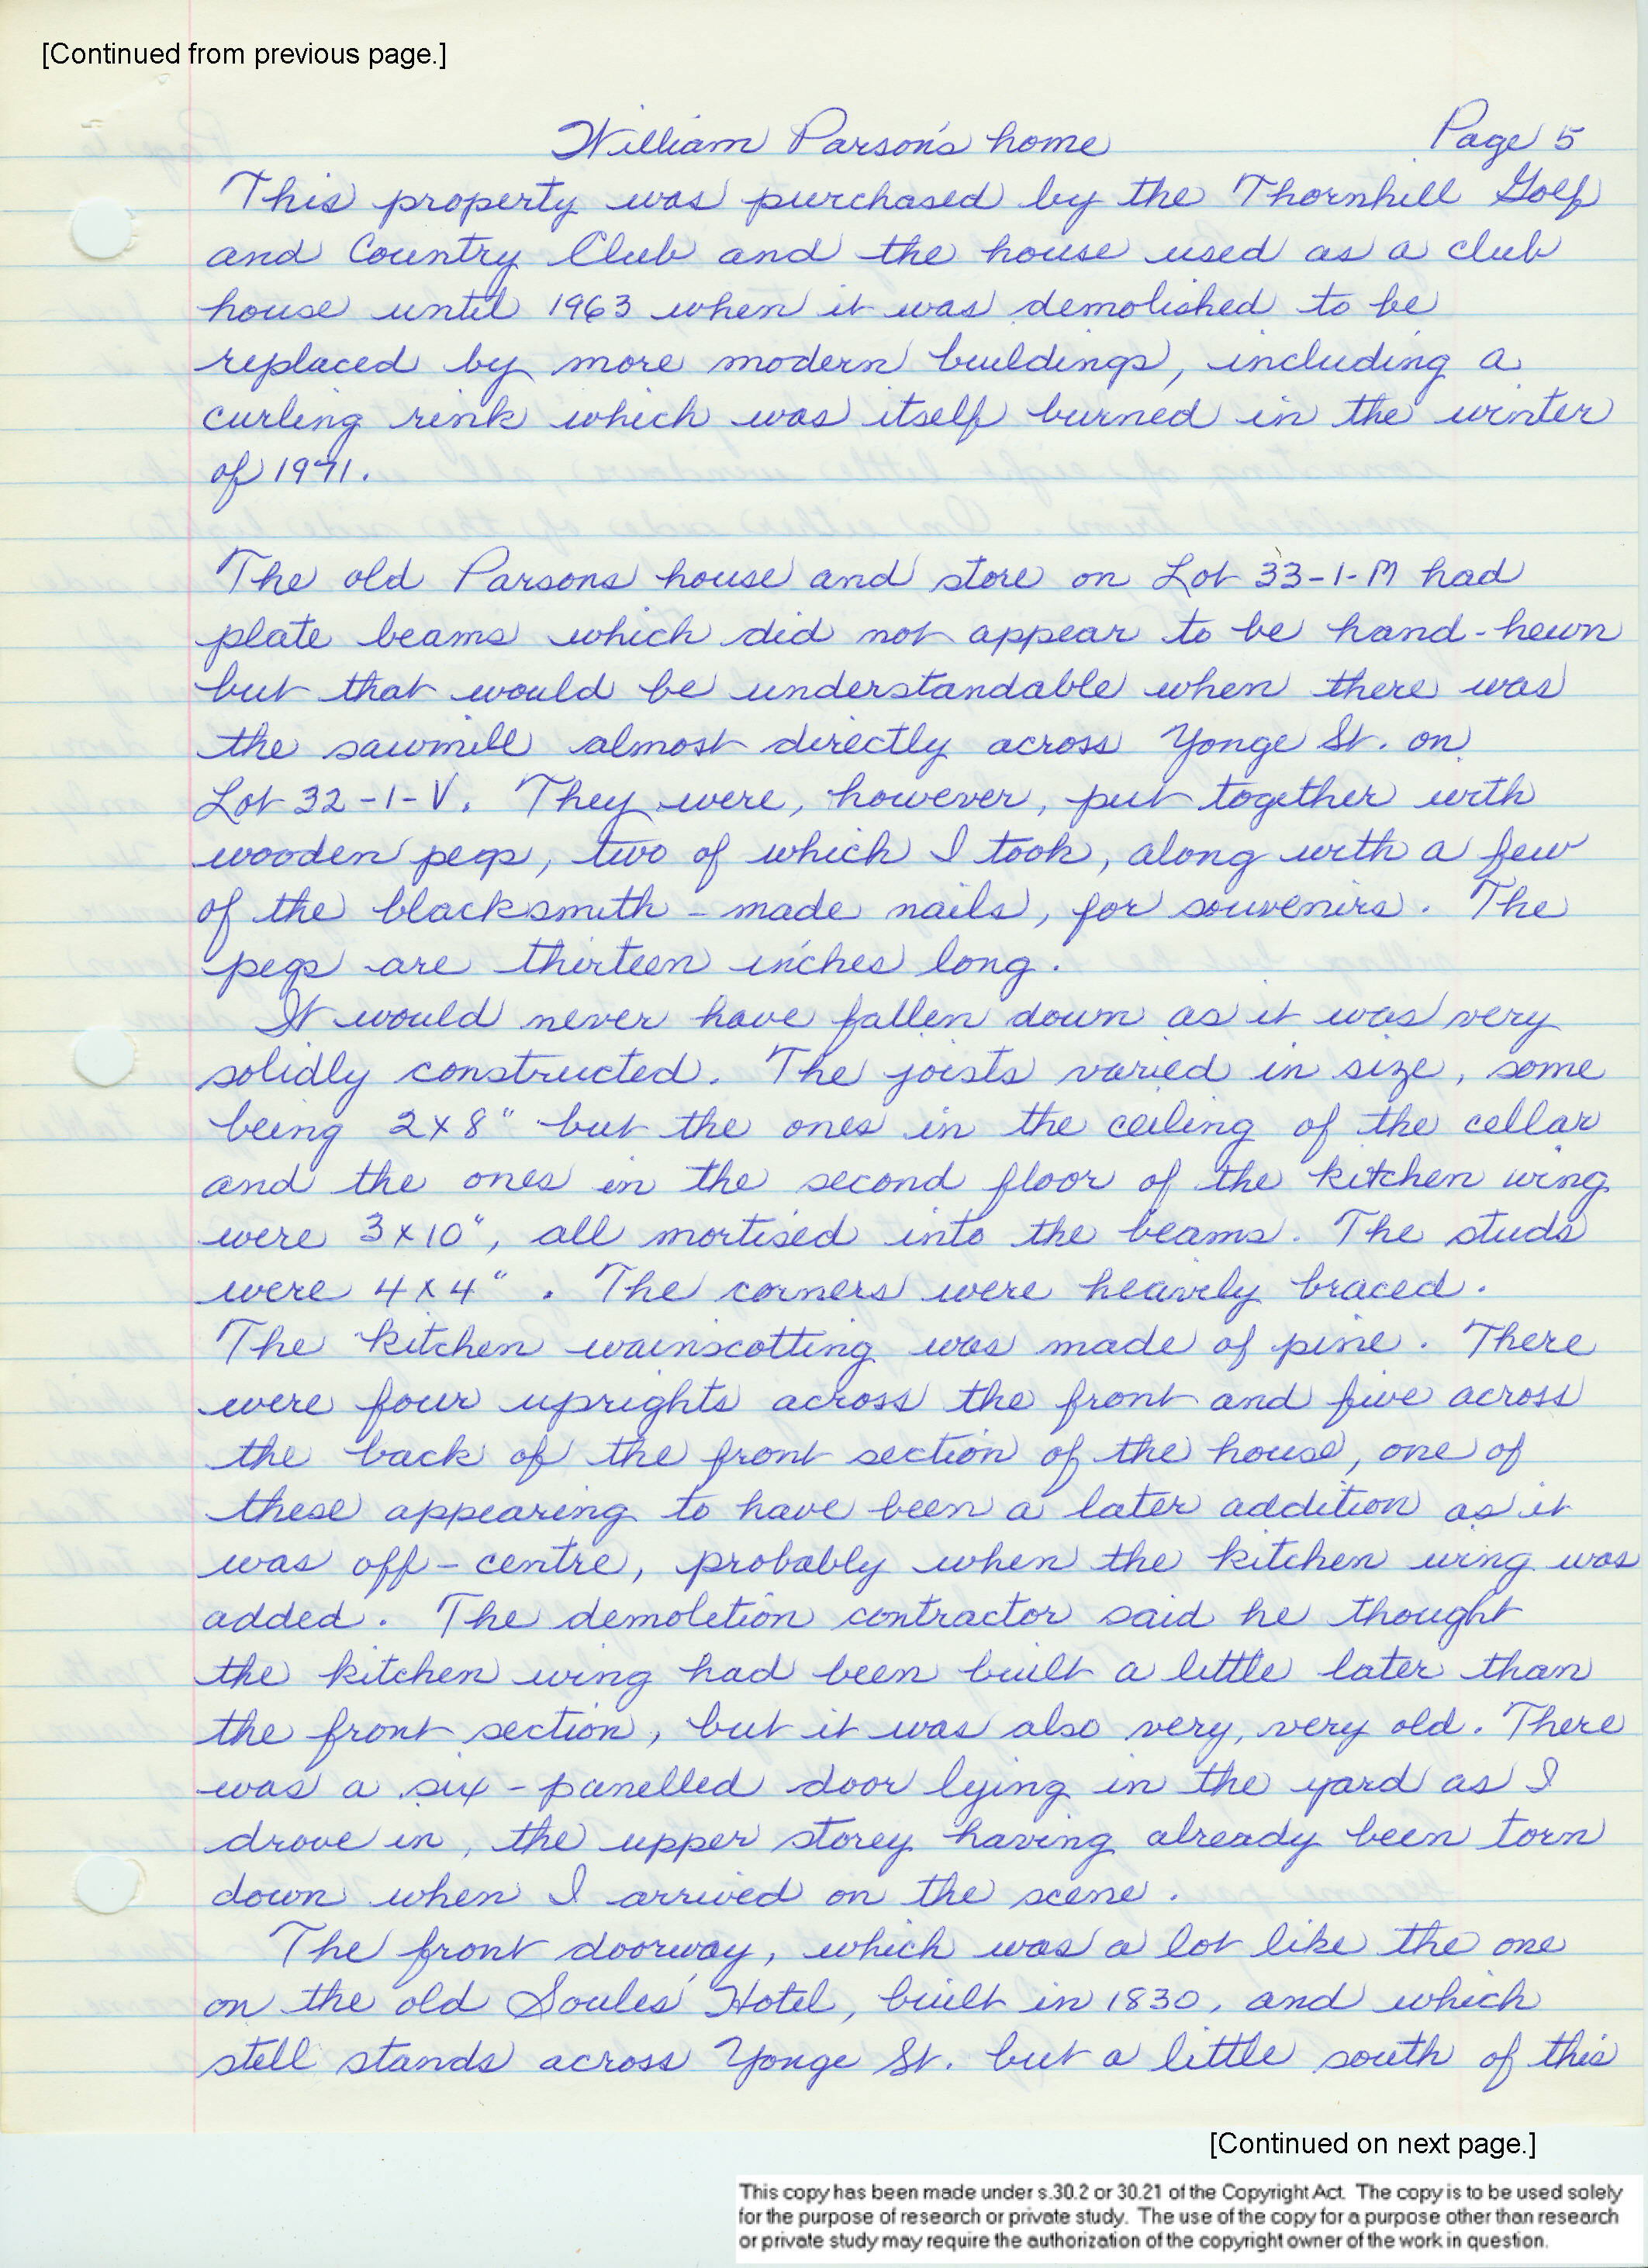 [Continued from previous page.]
William Parson's home Page 5
This property was purchased by the Thornhill Golf
and Country Club and the house used as a club
house until 1963 when it was demolished to be
replaced by more modern buildings, including a
curling rink which was itself burned in the winter
of 1971.
The old Parsons house and store on Lot 33-1-M had
plate beams which did not appear to be hand-hewn
but that would be understandable when there was
the sawmill almost directly across Yonge St. on
Lot 32-1-V. They were, however, put together with
wooden pegs, two of which I took, along with a few
of the blacksmith-made nails, for souvenirs. The
pegs are thirteen inches long.
It would never have fallen down as it was very
solidly constructed. The joists varied in size, some
being 2x8" but the ones in the ceiling of the cellar
and the ones in the second floor of the kitchen wing
were 3x10", all mortised into the beams. The studs
were 4x4". The corners were heavily braced.
The kitchen wainscotting was made of pine. There
were four uprights across the front and five across
the back of the front section of the house, one of
these appearing to have been a later addition as it
was off-centre, probably when the kitchen wing was
added. The demoletion contractor said he thought
the kitchen wing had been built a little later than
the front section, but it was also very, very old. There
was a six-panelled door lying in the yard as I
drove in, the upper storey having already been torn
down when I arrived on the scene.
The front doorway, which was a lot like the one
on the old Soules' Hotel, built in 1830, and which
still stands across Yonge St. but a little south of this
[Continued on next page.]
This copy has been made under s.30.2 or 30.21 of the Copyright Act. The copy is to be used solely
for the purpose of research or private study. The use of the copy for a purpose other than research
or private study may require the authorization of the copyright owner of the work in question.